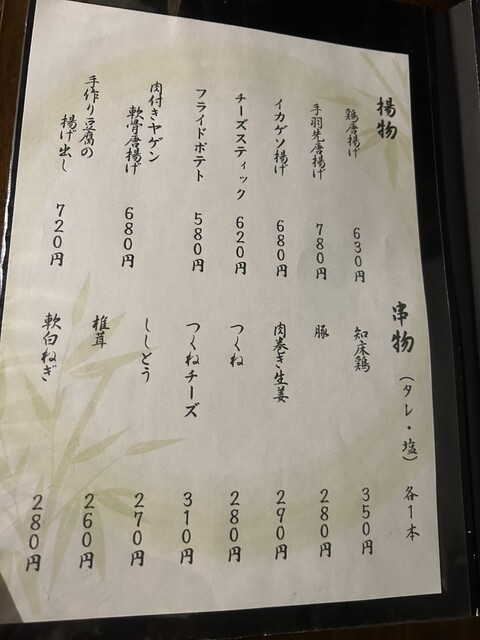 揚物
鶏唐揚げ 630円
手羽先唐揚げ 780円
イカゲソ揚げ 680円
チーズスティック 620円
フライドポテト 580円
肉付きヤゲン
軟骨唐揚げ 680円
手作り豆腐の
揚げ出し 720円
串物 (タレ・塩) 各1本
知床鶏 350円
豚 280円
肉巻き生姜 290円
つくね 280円
つくねチーズ 310円
ししとう 270円
椎茸 260円
軟白ねぎ 280円